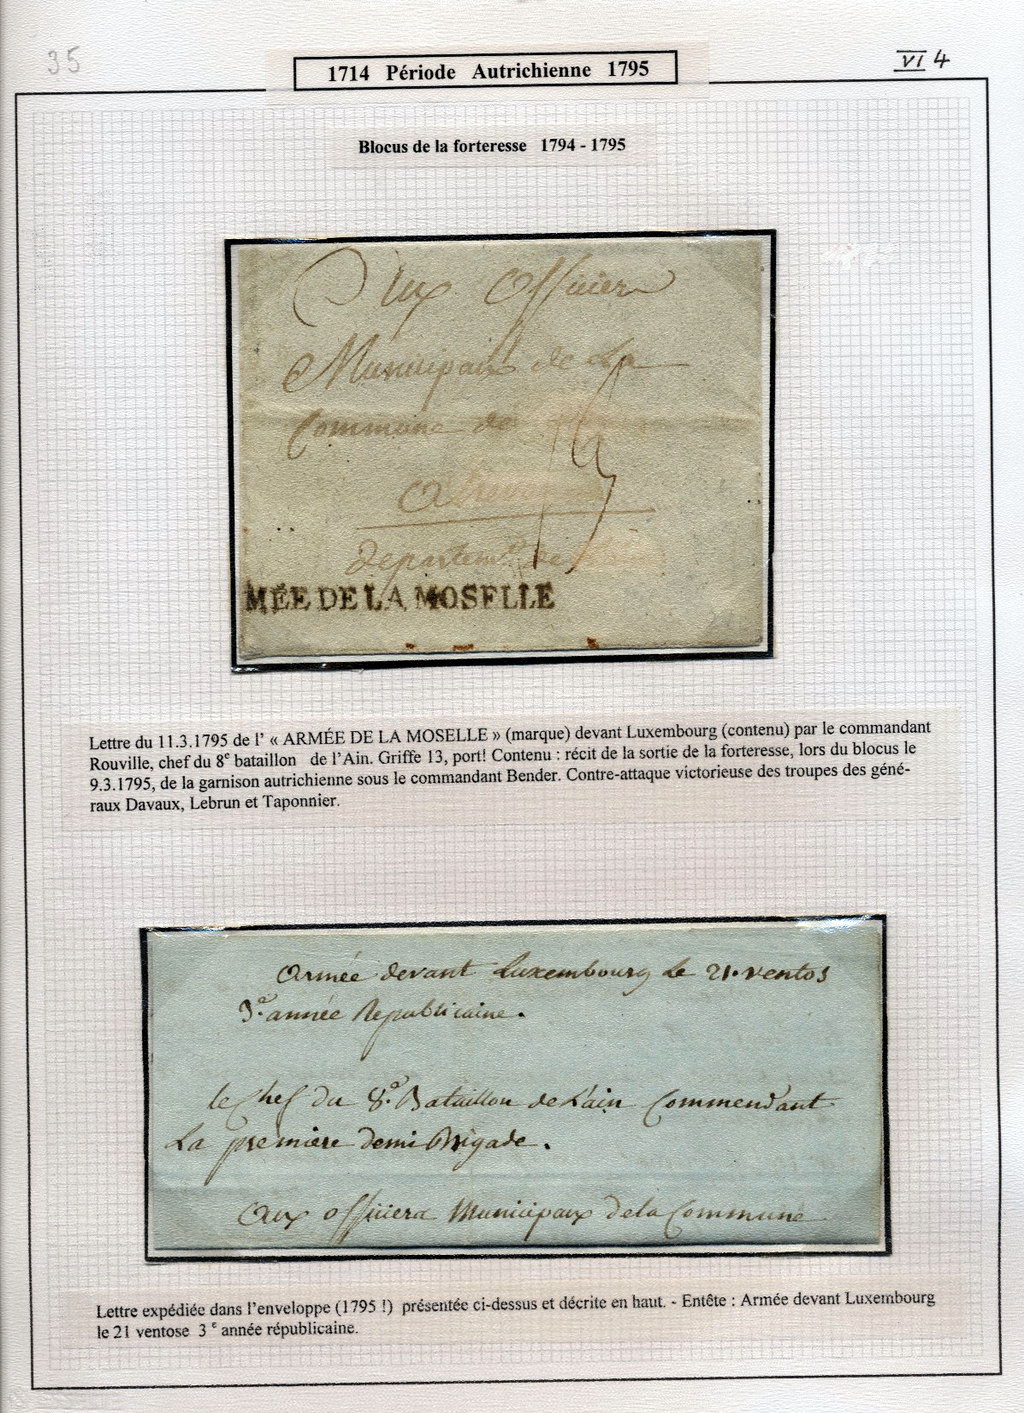 35
VI 4
1714 Période Autrichienne 1795
Blocus de la forteresse 1794 - 1795
Aux Officiers
Municipaux de la
Commune de
a
departemt. de
MÉE DE LA MOSELLE
Lettre du 11.3.1795 de l' « ARMÉE DE LA MOSELLE » (marque) devant Luxembourg (contenu) par le commandant
Rouville, chef du 8e bataillon de l'Ain. Griffe 13, port! Contenu : récit de la sortie de la forteresse, lors du blocus le
9.3.1795, de la garnison autrichienne sous le commandant Bender. Contre-attaque victorieuse des troupes des géné-
raux Davaux, Lebrun et Taponnier.
Armée devant Luxembourg le 21. ventos
3e. année Republicaine.
le Chef du 8e. Bataillon de L'ain Commendant
La première demi Brigade.
Aux officiers Municipaux de la Commune
Lettre expédiée dans l'enveloppe (1795 !) présentée ci-dessus et décrite en haut. - Entête : Armée devant Luxembourg
le 21 ventose 3 e année républicaine.